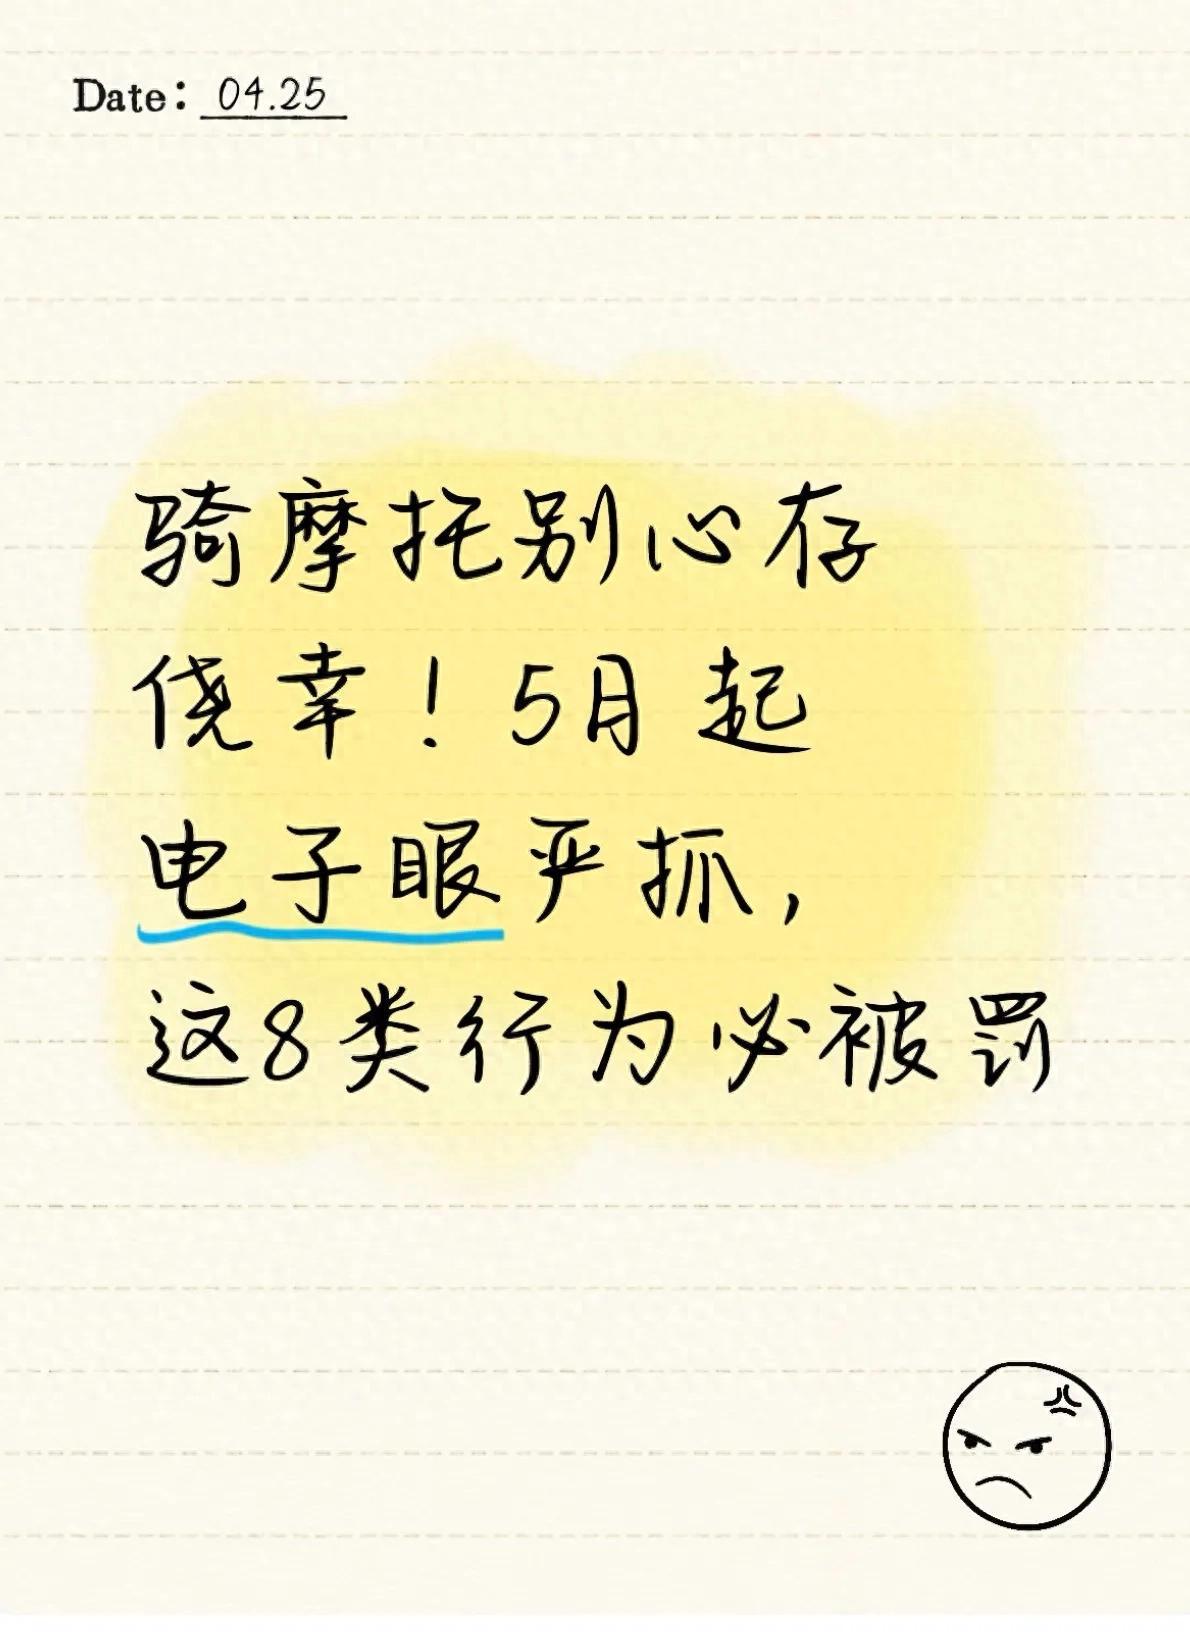 Date: 04.25
骑摩托别心存
侥幸！5月起
电子眼严抓，
这8类行为必被罚